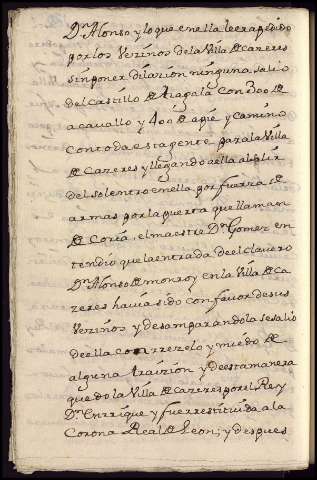 Dn. Alonso y lo que en ella le era pedido
por los Vezinos de la Villa de Cazeres
sin poner dilazion ninguna, salio
del Castillo de Azagala con 300 de
a cavallo y 400 de apie y camino
con toda esta gente para la Villa
de Cazeres y llegando a ella al salir
del sol entro en ella por fuerza de
armas por la puerta que llaman
de Coria, el maestre Dn. Gomez en
tendio que la entrada de el clavero
Dn. Alonso de monroy en la Villa de Ca
zeres havia sido con favor de sus
Vezinos y desamparandola se salio
de ella con rrezelo y miedo de
alguna traizion y de esta manera
quedo la Villa de Cazeres por el Rey
Dn. Enrrique y fue rrestituida a la
Corona Real de Leon; y despues